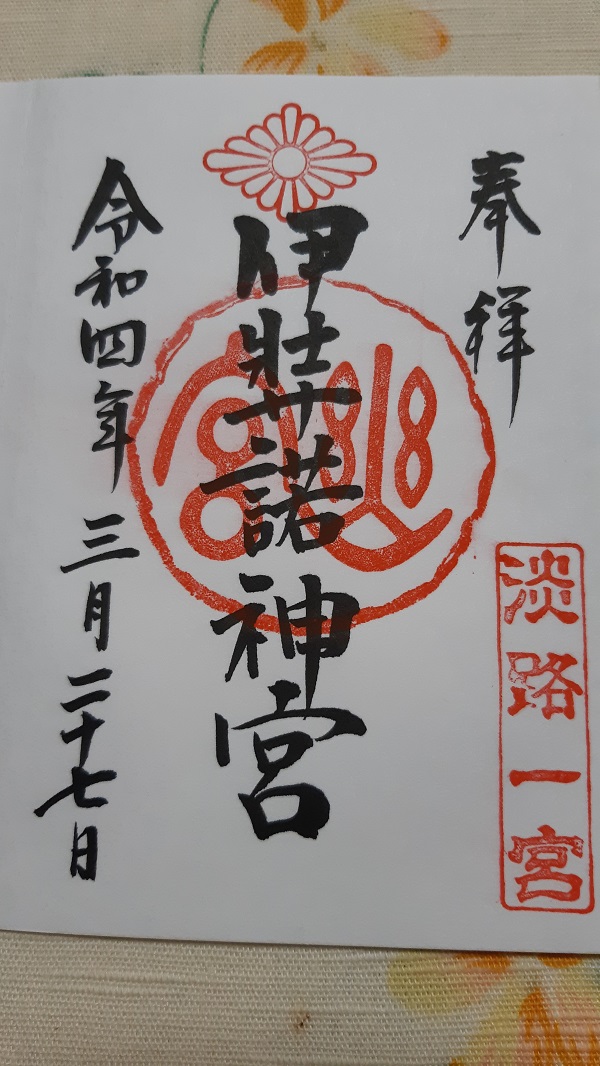 奉拝
淡路一宮
伊弉諾神宮
令和四年三月二十七日